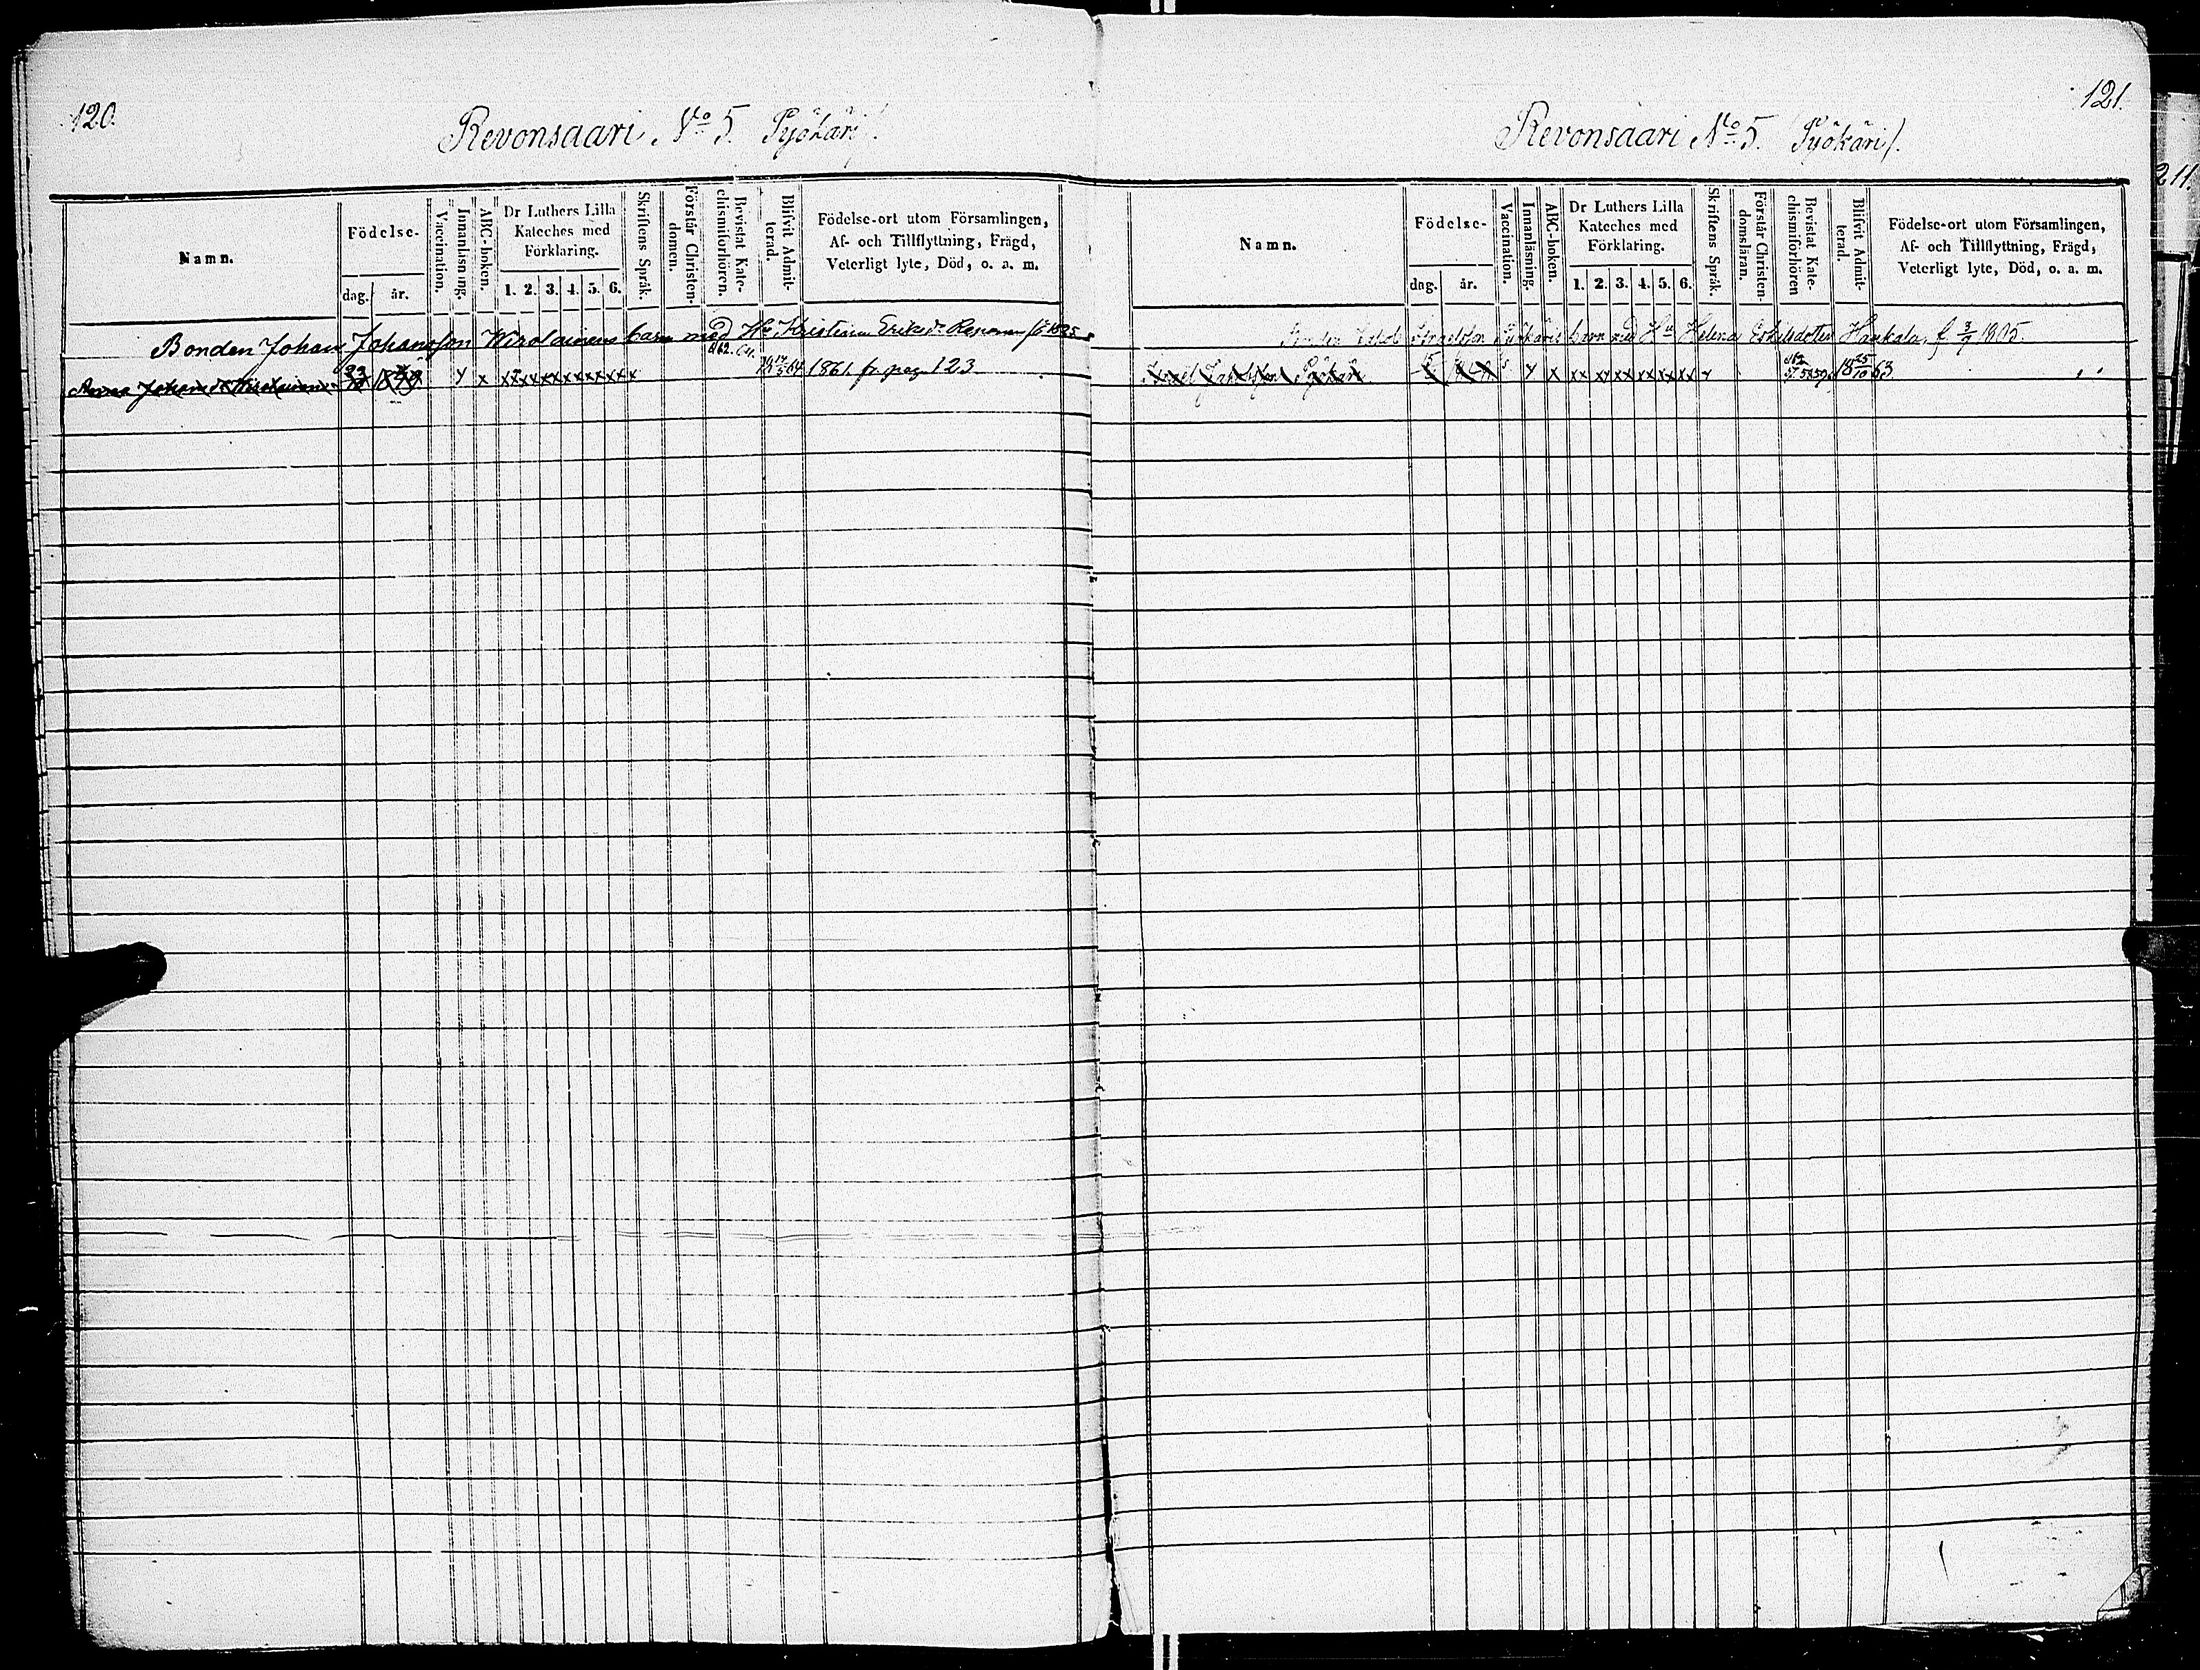 120.
Revonsaari No 5. Pyökäri/.
Namn.
Födelse-
dag.
år.
Vaccination.
Innanläsning.
ABC-boken.
Dr Luthers Lilla
Kateches med
Förklaring.
1. 2. 3. 4. 5. 6.
Skriftens Språk.
Förstår Christen-
domen.
Bevistat Kate-
chismiförhören.
Blifvit Admit-
terad.
Födelse-ort utom Församlingen,
Af- och Tillflyttning, Frägd,
Veterligt lyte, Död, o. a. m.
Bonden Johan Johansson Wirolainens barn med Hu Kristina Eriksdr Reponen f. 1825
Anna Johansdr Wirolainen y x x x x x x x x 62. 64. 1861. fr. pag. 123
121.
Revonsaari No 5. Pyökäri/.
Namn.
Födelse-
dag.
år.
Vaccination.
Innanläsning.
ABC-boken.
Dr Luthers Lilla
Kateches med
Förklaring.
1. 2. 3. 4. 5. 6.
Skriftens Språk.
Förstår Christen-
domsläran.
Bevistat Kate-
chismiförhören
Blifvit Admit-
terad.
Födelse-ort utom Församlingen,
Af- och Tillflyttning, Frägd,
Veterligt lyte, Död, o. a. m.
Pyökäris barn med Hu Helena Eskelsdotter Hankala, f. 3/9 1805.
Pyökäri s y x xx xx xx xx xx xx y 57. 58 59. 18 25/10 63.
211.